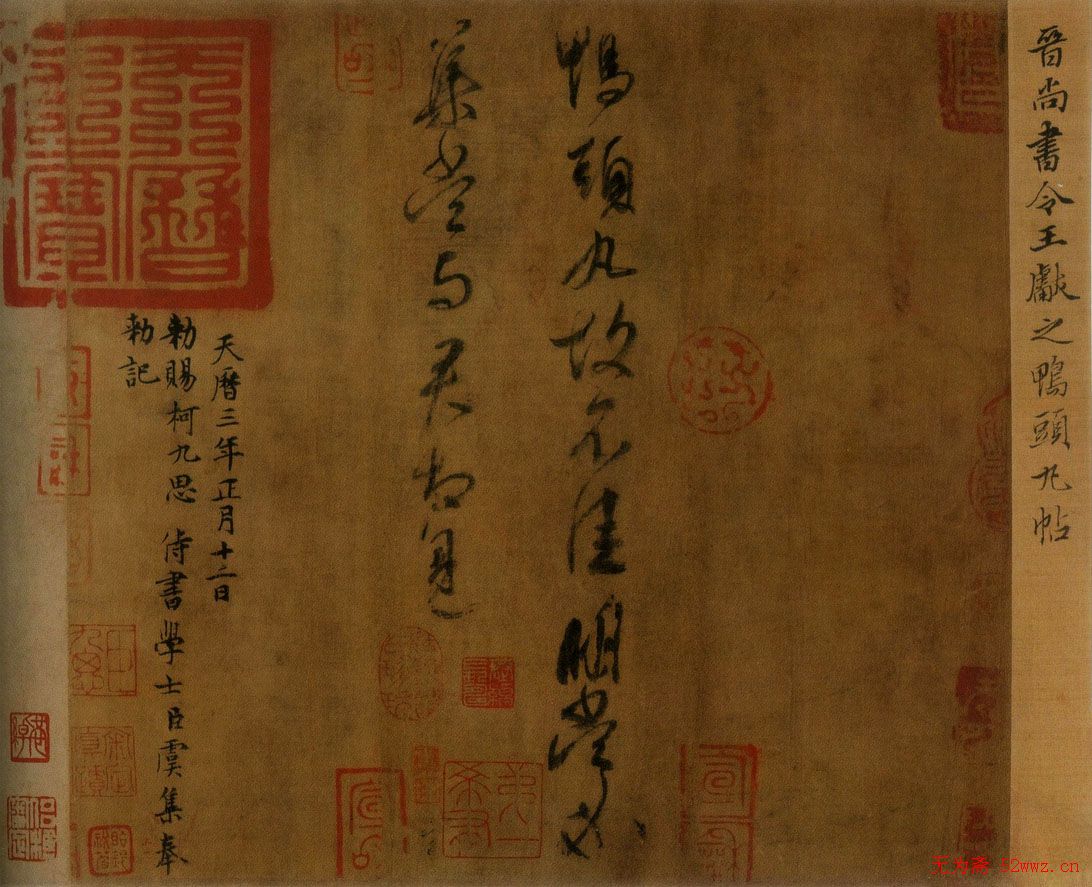 晉尚書令王獻之鴨頭丸帖
鴨頭丸故不佳明當必
集當与君相見
天曆三年正月十二日
勑賜柯九思侍書學士臣虞集奉
勑記
天曆之寶
无为斋 52wwz.cn